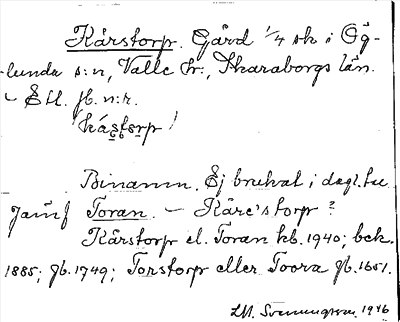 Kårstorp. Gård 1/4 sk i Ög-
lunda s:n, Valle hr., Skaraborgs län.
– Ett jb. n:r.
Binamn. Ej brukat i dagl. tal
Jämf Toran. – Kåre'storp?
Kårstorp el. Toran kb. 1940; bek.
1885; jb. 1749; Torstorp eller Toora jb. 1651.
1946